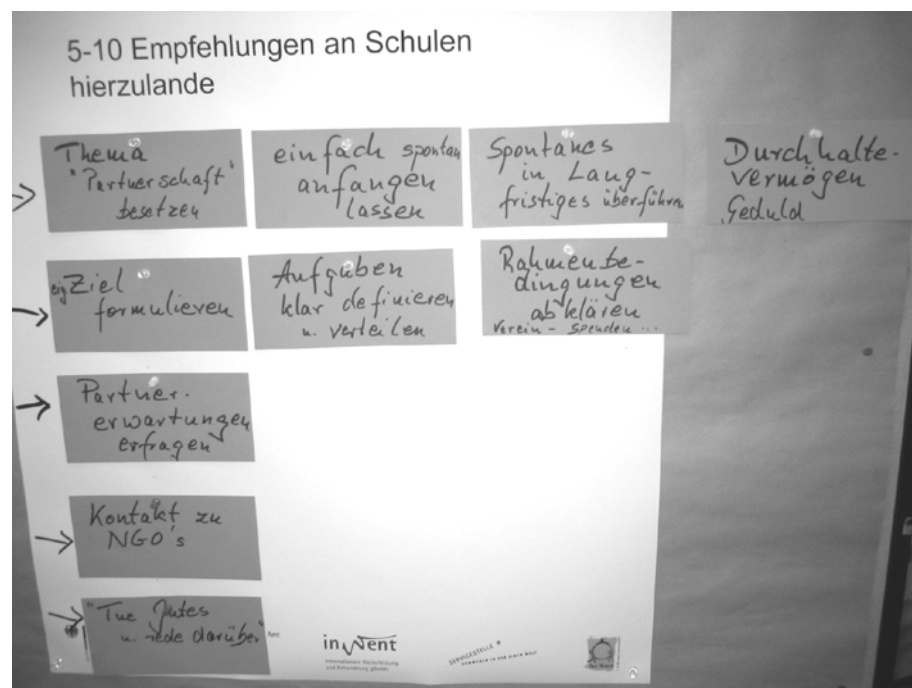 5-10 Empfehlungen an Schulen
hierzulande
Thema
"Partnerschaft"
besetzen
einfach spontan
anfangen
lassen
Spontanes
in Lang-
fristiges überführen
Durchhalte-
vermögen
Geduld
eig Ziel
formulieren
Aufgaben
klar definieren
u. verteilen
Rahmenbe-
dingungen
abklären
Verein - Spenden ...
Partner-
erwartungen
erfragen
Kontakt zu
NGO's
"Tue Gutes
u. rede darüber"
inwent
Internationale Weiterbildung
und Entwicklung gGmbH
SERVICESTELLE
KOMMUNEN IN DER EINEN WELT